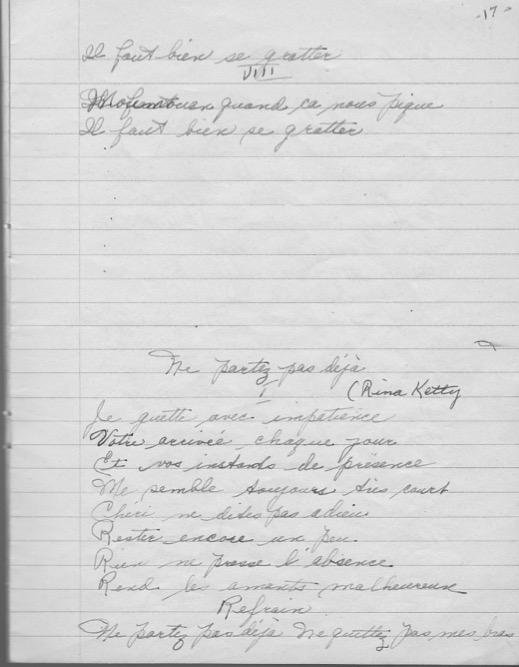 -17-
Il faut bien se gratter
VIII
quand ca nous pique
Il faut bien se gratter
Ne partez pas déjà
I
(Rina Ketty
Je guette avec impatience
Votre arrivée chaque jour
Et vos instants de présence
Me semble toujours très court
Chéri ne dites pas adieu
Rester encore un peu
Rien ne presse l'absence
Rend les amants malheureux
Refrain
Ne partez pas déjà Ne quittez pas mes bras